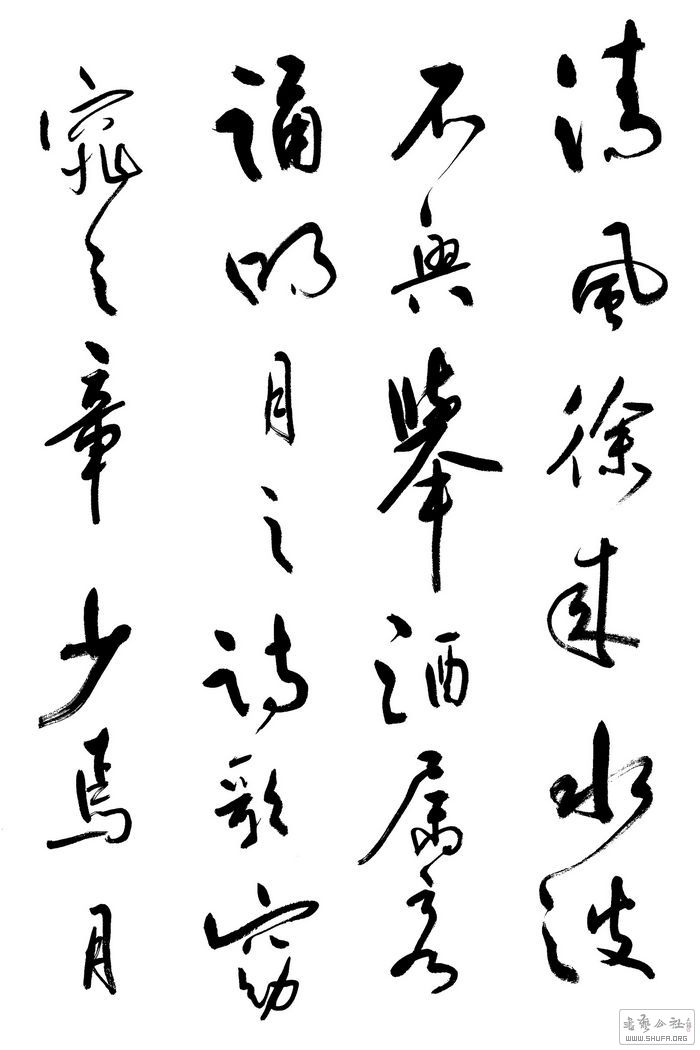 清風徐来水波
不興舉酒属客
誦明月之詩歌窈
窕之章少焉月
书艺公社
WWW.SHUFA.ORG